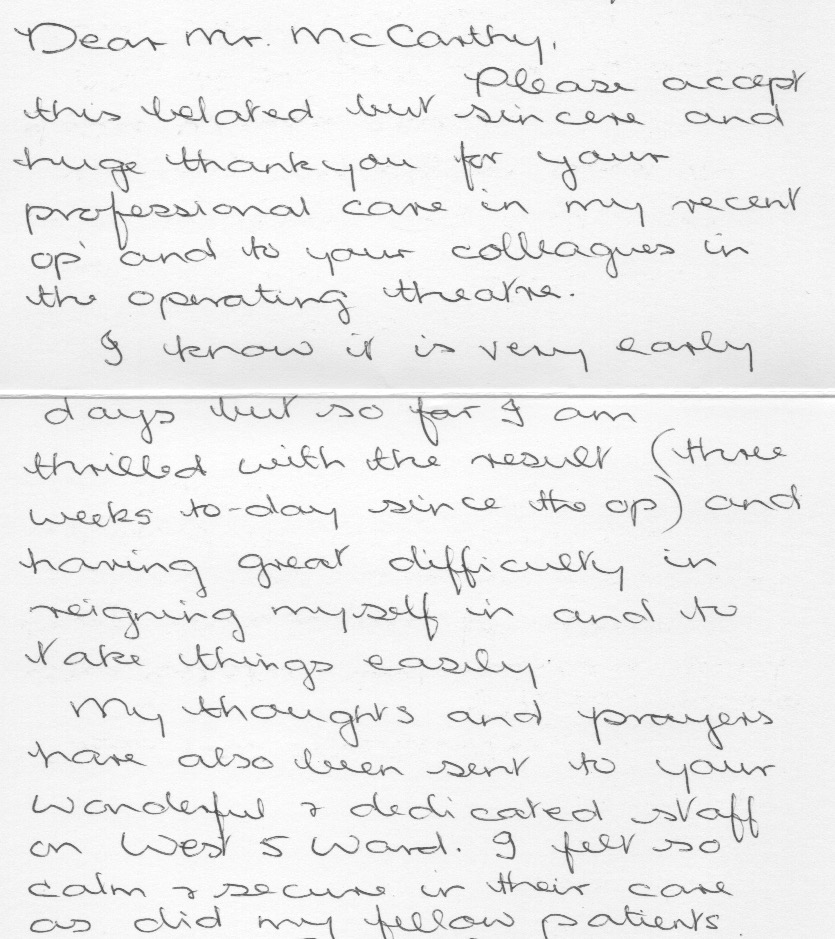 Dear Mr. McCarthy,
Please accept
this belated but sincere and
huge thankyou for your
professional care in my recent
op' and to your colleagues in
the operating theatre.
I know it is very early
days but so far I am
thrilled with the result (three
weeks to-day since the op) and
having great difficulty in
reigning myself in and to
take things easily.
My thoughts and prayers
have also been sent to your
wonderful & dedicated staff
on West 5 Ward. I felt so
calm & secure in their care
as did my fellow patients.